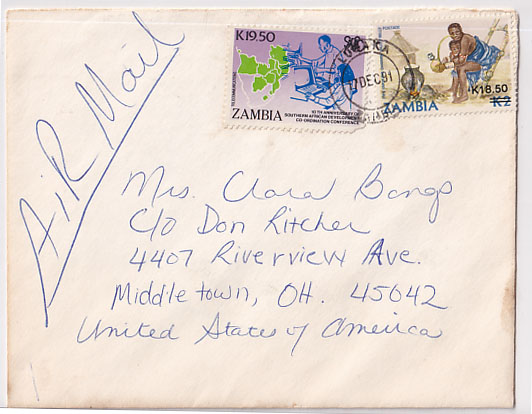 K19.50
TELECOMMUNICATIONS
10TH ANNIVERSARY OF
SOUTHERN AFRICAN DEVELOPMENT
CO-ORDINATION CONFERENCE
ZAMBIA
POSTAGE
K18.50
K2
ZAMBIA
LUSAKA
27 DEC 91
AIR Mail
Mrs. Clara Bangs
C/O Don Ritcher
4407 Riverview Ave.
Middletown, OH. 45042
United States of America